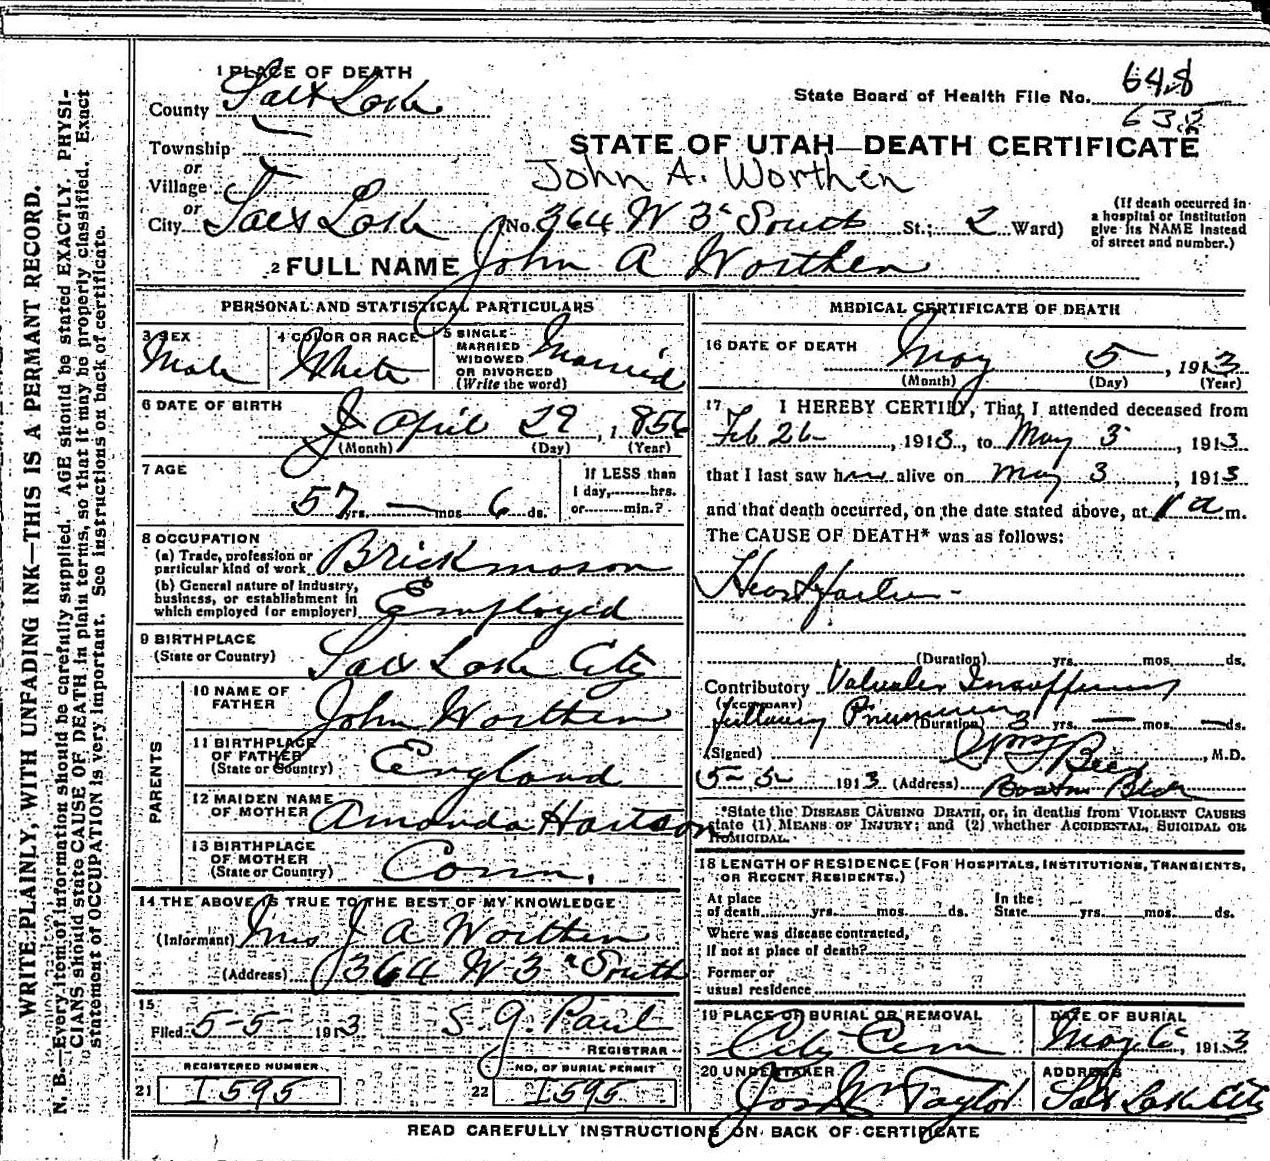 WRITE PLAINLY, WITH UNFADING INK—THIS IS A PERMANT RECORD.
N. B.—Every item of information should be carefully supplied. AGE should be stated EXACTLY. PHYSI-
CIANS should state CAUSE OF DEATH in plain terms, so that it may be properly classified. Exact
statement of OCCUPATION is very important. See instructions on back of certificate.
1 PLACE OF DEATH
County Salt Lake
State Board of Health File No. 648
63
Township
or
Village
STATE OF UTAH—DEATH CERTIFICATE
John A. Worthen
or
City Salt Lake (No. 364 W 3 South St.; 2 Ward)
(If death occurred in
a hospital or institution
give its NAME instead
of street and number.)
2 FULL NAME John A Worthen
PERSONAL AND STATISTICAL PARTICULARS
3 SEX
Male
4 COLOR OR RACE
White
5 SINGLE
MARRIED
WIDOWED
OR DIVORCED
(Write the word)
Married
6 DATE OF BIRTH
April 29, 1856
(Month) (Day) (Year)
7 AGE
57 yrs. — mos 6 ds.
If LESS than
1 day,........hrs.
or........min.?
8 OCCUPATION
(a) Trade, profession or
particular kind of work Brickmason
(b) General nature of industry,
business, or establishment in
which employed (or employer) Employed
9 BIRTHPLACE
(State or Country) Salt Lake City
PARENTS
10 NAME OF
FATHER John Worthen
11 BIRTHPLACE
OF FATHER
(State or Country) England
12 MAIDEN NAME
OF MOTHER Amanda Hartson
13 BIRTHPLACE
OF MOTHER
(State or Country) Conn.
14 THE ABOVE IS TRUE TO THE BEST OF MY KNOWLEDGE
(Informant) Mrs J A Worthen
(Address) 364 W 3rd South
15
Filed 5-5- 1913 S. G. Paul
REGISTRAR
REGISTERED NUMBER
21 I595
NO. OF BURIAL PERMIT
22 I595
MEDICAL CERTIFICATE OF DEATH
16 DATE OF DEATH
May 5, 1913
(Month) (Day) (Year)
17 I HEREBY CERTIFY, That I attended deceased from
Feb 26, 1913, to May 3, 1913
that I last saw him alive on May 3, 1913
and that death occurred, on the date stated above, at 1 a m.
The CAUSE OF DEATH* was as follows:
Heart failure
(Duration) yrs. mos. ds.
Contributory Valvular Insufficiency
(SECONDARY)
following Pneumonia (Duration) 3 yrs. — mos. — ds.
(Signed) M.D.
5-5- 1913 (Address) Boston Bldg
*State the DISEASE CAUSING DEATH, or, in deaths from VIOLENT CAUSES
state (1) MEANS OF INJURY; and (2) whether ACCIDENTAL, SUICIDAL OR
HOMICIDAL.
18 LENGTH OF RESIDENCE (FOR HOSPITALS, INSTITUTIONS, TRANSIENTS,
OR RECENT RESIDENTS.)
At place
of death yrs. mos. ds.
In the
State yrs. mos. ds.
Where was disease contracted,
if not at place of death?
Former or
usual residence
19 PLACE OF BURIAL OR REMOVAL
City Cem
DATE OF BURIAL
May 6, 1913
20 UNDERTAKER
Jos Wm Taylor
ADDRESS
Salt Lake City
READ CAREFULLY INSTRUCTIONS ON BACK OF CERTIFICATE